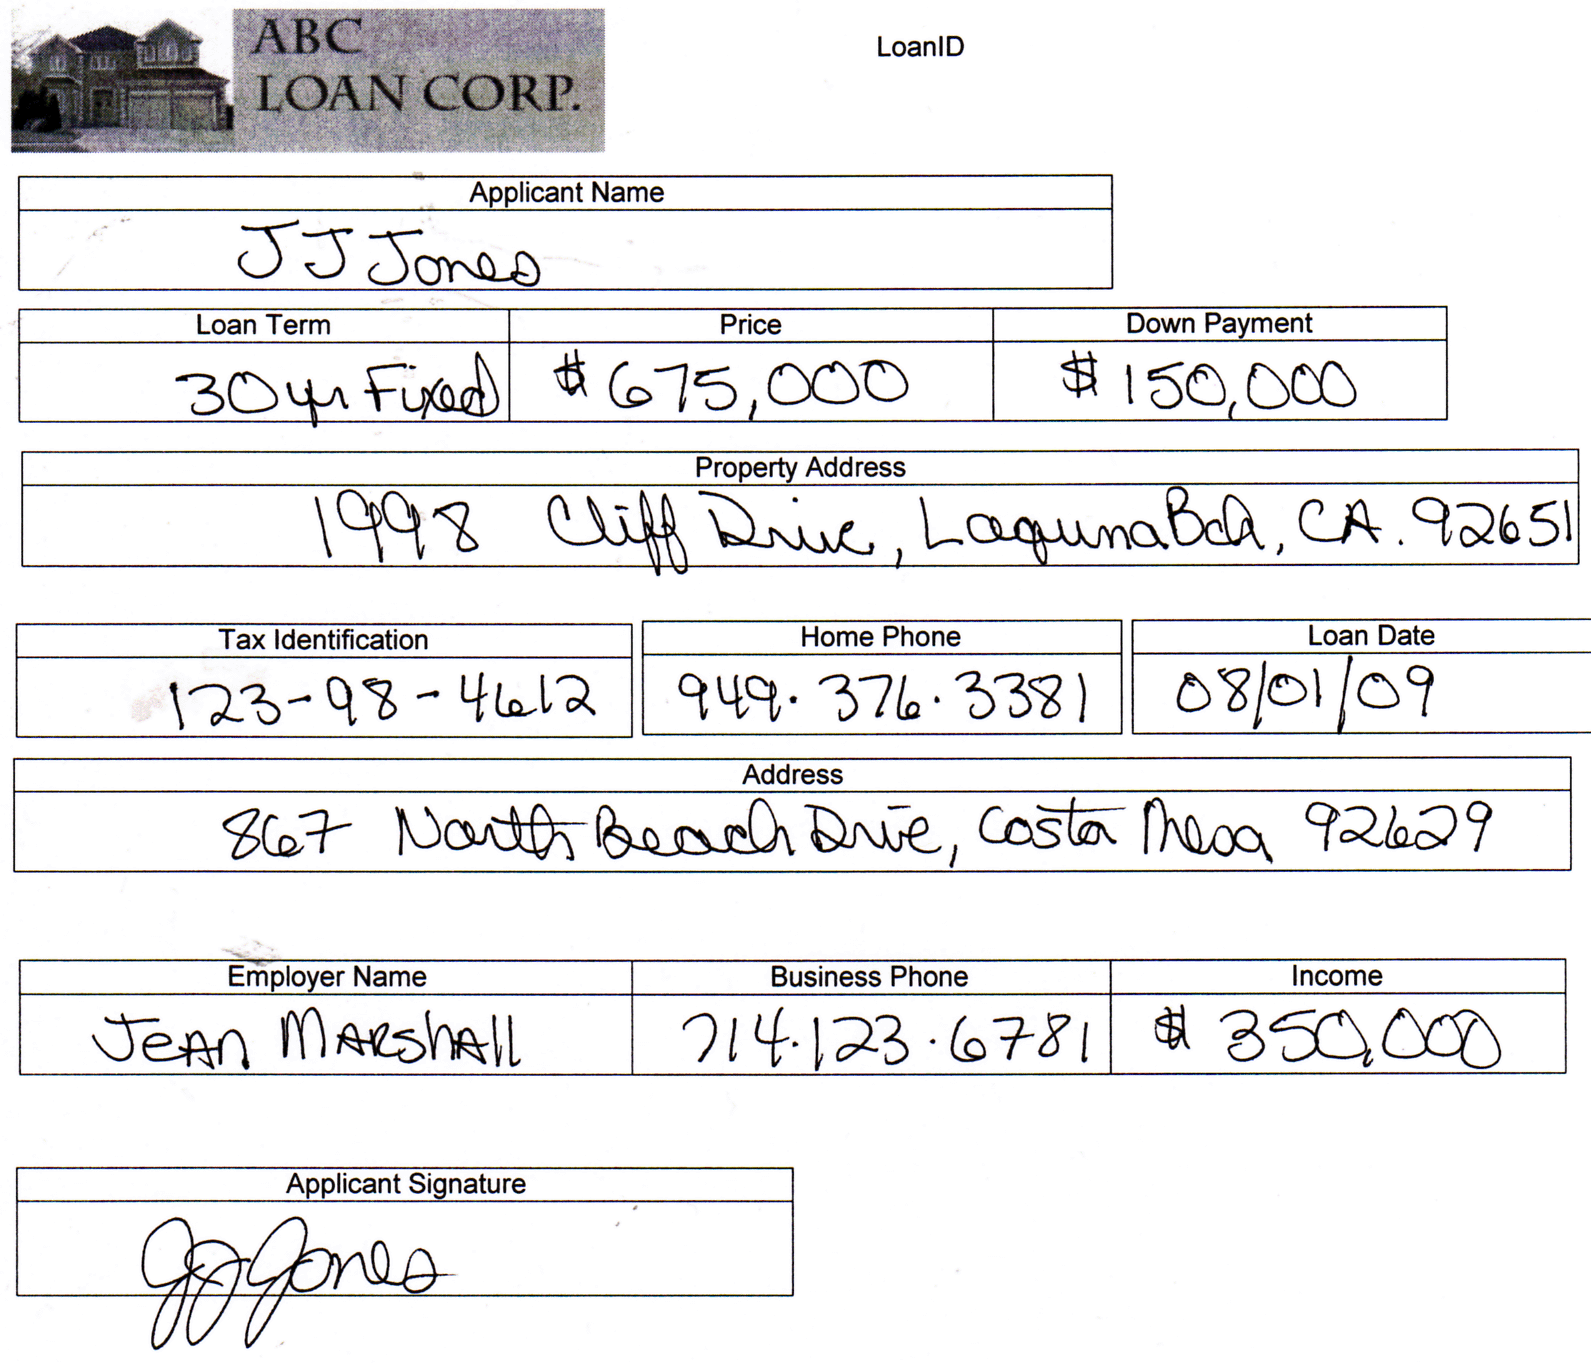 ABC
LOAN CORP.
LoanID
Applicant Name
JJ Jones
Loan Term Price Down Payment
30 yr Fixed $675,000 $150,000
Property Address
1998 Cliff Drive, Laguna Bch, CA. 92651
Tax Identification Home Phone Loan Date
123-98-4612 949.376.3381 08/01/09
Address
867 North Beach Drive, Costa Mesa 92629
Employer Name Business Phone Income
Jean Marshall 714.123.6781 $350,000
Applicant Signature
JJ Jones